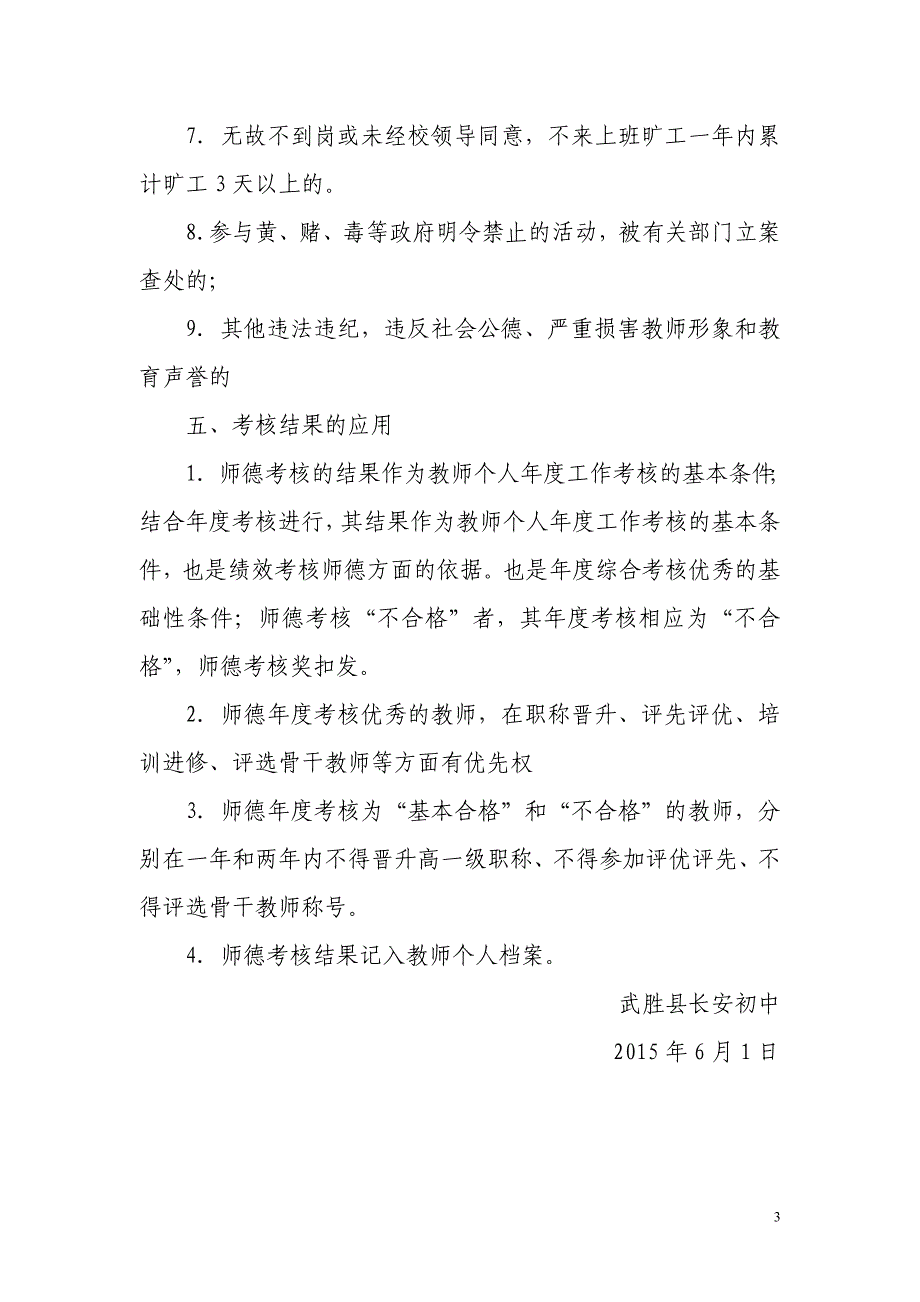 7. 无故不到岗或未经校领导同意，不来上班旷工一年内累
计旷工 3 天以上的。
8.参与黄、赌、毒等政府明令禁止的活动，被有关部门立案
查处的；
9. 其他违法违纪，违反社会公德、严重损害教师形象和教
育声誉的
五、考核结果的应用
1. 师德考核的结果作为教师个人年度工作考核的基本条件；
结合年度考核进行，其结果作为教师个人年度工作考核的基本条
件，也是绩效考核师德方面的依据。也是年度综合考核优秀的基
础性条件；师德考核“不合格”者，其年度考核相应为“不合
格”，师德考核奖扣发。
2. 师德年度考核优秀的教师，在职称晋升、评先评优、培
训进修、评选骨干教师等方面有优先权
3. 师德年度考核为“基本合格”和“不合格”的教师，分
别在一年和两年内不得晋升高一级职称、不得参加评优评先、不
得评选骨干教师称号。
4. 师德考核结果记入教师个人档案。
武胜县长安初中
2015 年 6 月 1 日
3